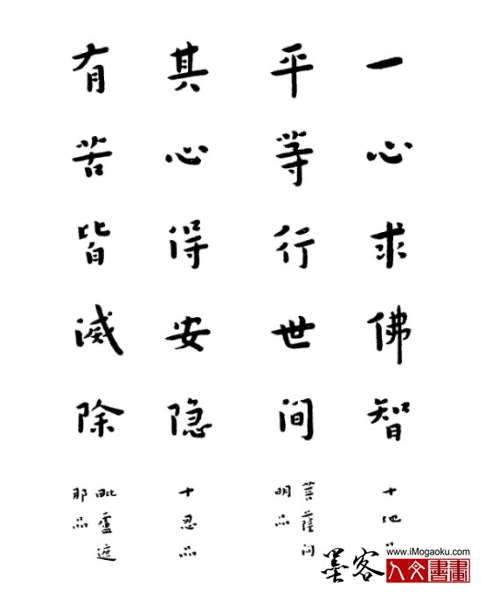 一心求佛智
十地品
平等行世间
菩薩问
明品
其心得安隐
十忍品
有苦皆滅除
毗盧遮
那品
墨客
www.iMogaoku.com
人文書畫